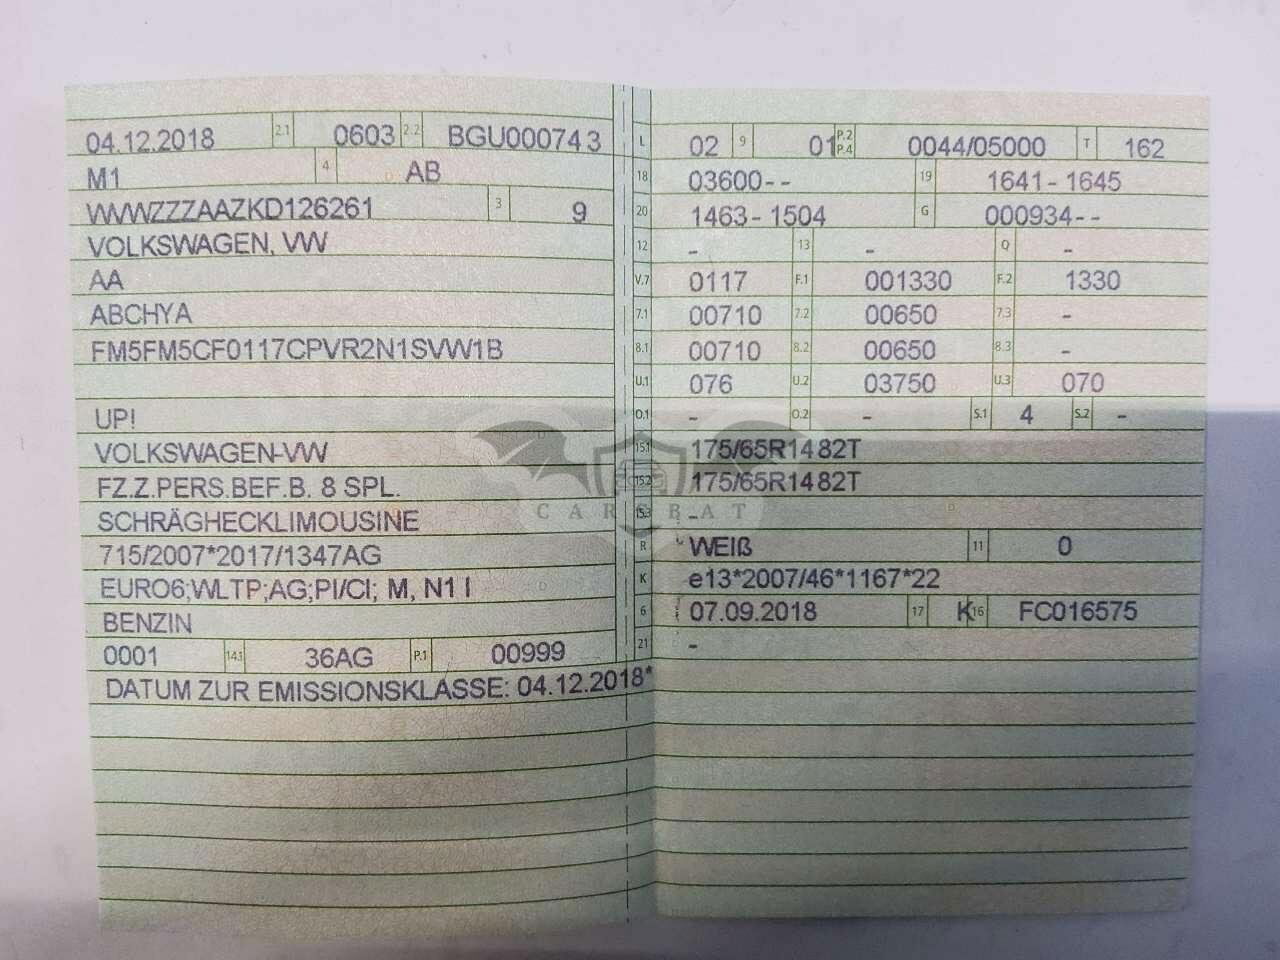 04.12.2018 2.1 0603 2.2 BGU000743
M1 4 AB
WVWZZZAAZKD126261 3 9
VOLKSWAGEN, VW
AA
ABCHYA
FM5FM5CF0117CPVR2N1SVW1B
UP!
VOLKSWAGEN-VW
FZ.Z.PERS.BEF.B. 8 SPL.
SCHRÄGHECKLIMOUSINE
715/2007*2017/1347AG
EURO6;WLTP;AG;PI/CI; M, N1 I
BENZIN
0001 14.1 36AG P.1 00999
DATUM ZUR EMISSIONSKLASSE: 04.12.2018*
L 02 9 01 P.2 P.4 0044/05000 T 162
18 03600-- 19 1641-1645
20 1463-1504 G 000934--
12 - 13 - Q -
V.7 0117 F.1 001330 F.2 1330
7.1 00710 7.2 00650 7.3 -
8.1 00710 8.2 00650 8.3 -
U.1 076 U.2 03750 U.3 070
O.1 - O.2 - S.1 4 S.2 -
15.1 175/65R14 82T
15.2 175/65R14 82T
15.3 -
R WEIß 11 0
K e13*2007/46*1167*22
6 07.09.2018 17 K 16 FC016575
21 -